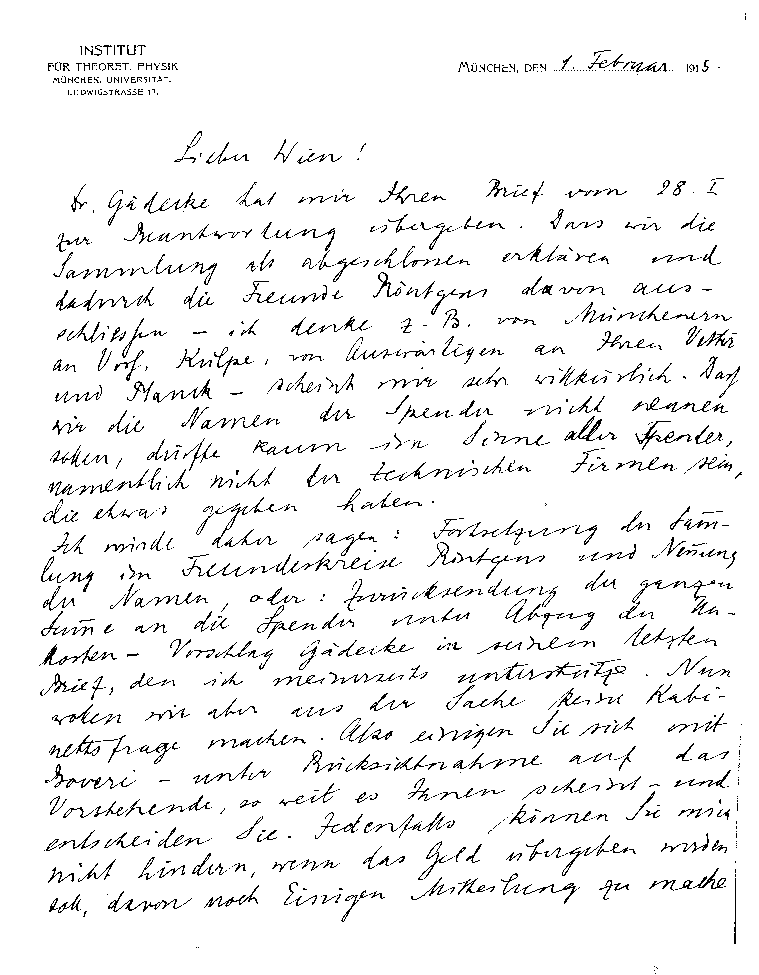 INSTITUT
FÜR THEORET. PHYSIK
MÜNCHEN, UNIVERSITÄT.
LUDWIGSTRASSE 17.
MÜNCHEN, DEN 1. Februar 1915.
Lieber Wien!
Dr. Gädecke hat mir Ihren Brief vom 28. I
zur Beantwortung übergeben. Dass wir die
Sammlung als abgeschlossen erklären und
dadurch die Freunde Röntgens davon aus-
schliessen – ich denke z. B. von Münchenern
an Prof. Külpe, von Auswärtigen an Ihren Vetter
und Planck – scheint mir sehr willkürlich. Dass
wir die Namen der Spender nicht nennen
sollen, dürfte kaum im Sinne aller Spender,
namentlich nicht der technischen Firmen sein,
die etwas gegeben haben.
Ich würde daher sagen: Fortsetzung der Sam̄-
lung im Freundeskreise Röntgens und Nennung
der Namen, oder: Zurücksendung der ganzen
Sum̄e an die Spender unter Abzug der Un-
kosten – Vorschlag Gädecke in seinem letzten
Brief, den ich meinerseits unterstütze. Nun
wollen wir aber aus der Sache keine Kabi-
nettsfrage machen. Also einigen Sie sich mit
Boveri – unter Rücksichtnahme auf das
Vorstehende, so weit es Ihnen scheint – und
entscheiden Sie. Jedenfalls können Sie mich
nicht hindern, wenn das Geld übergeben werden
soll, davon noch Einigen Mitteilung zu mache